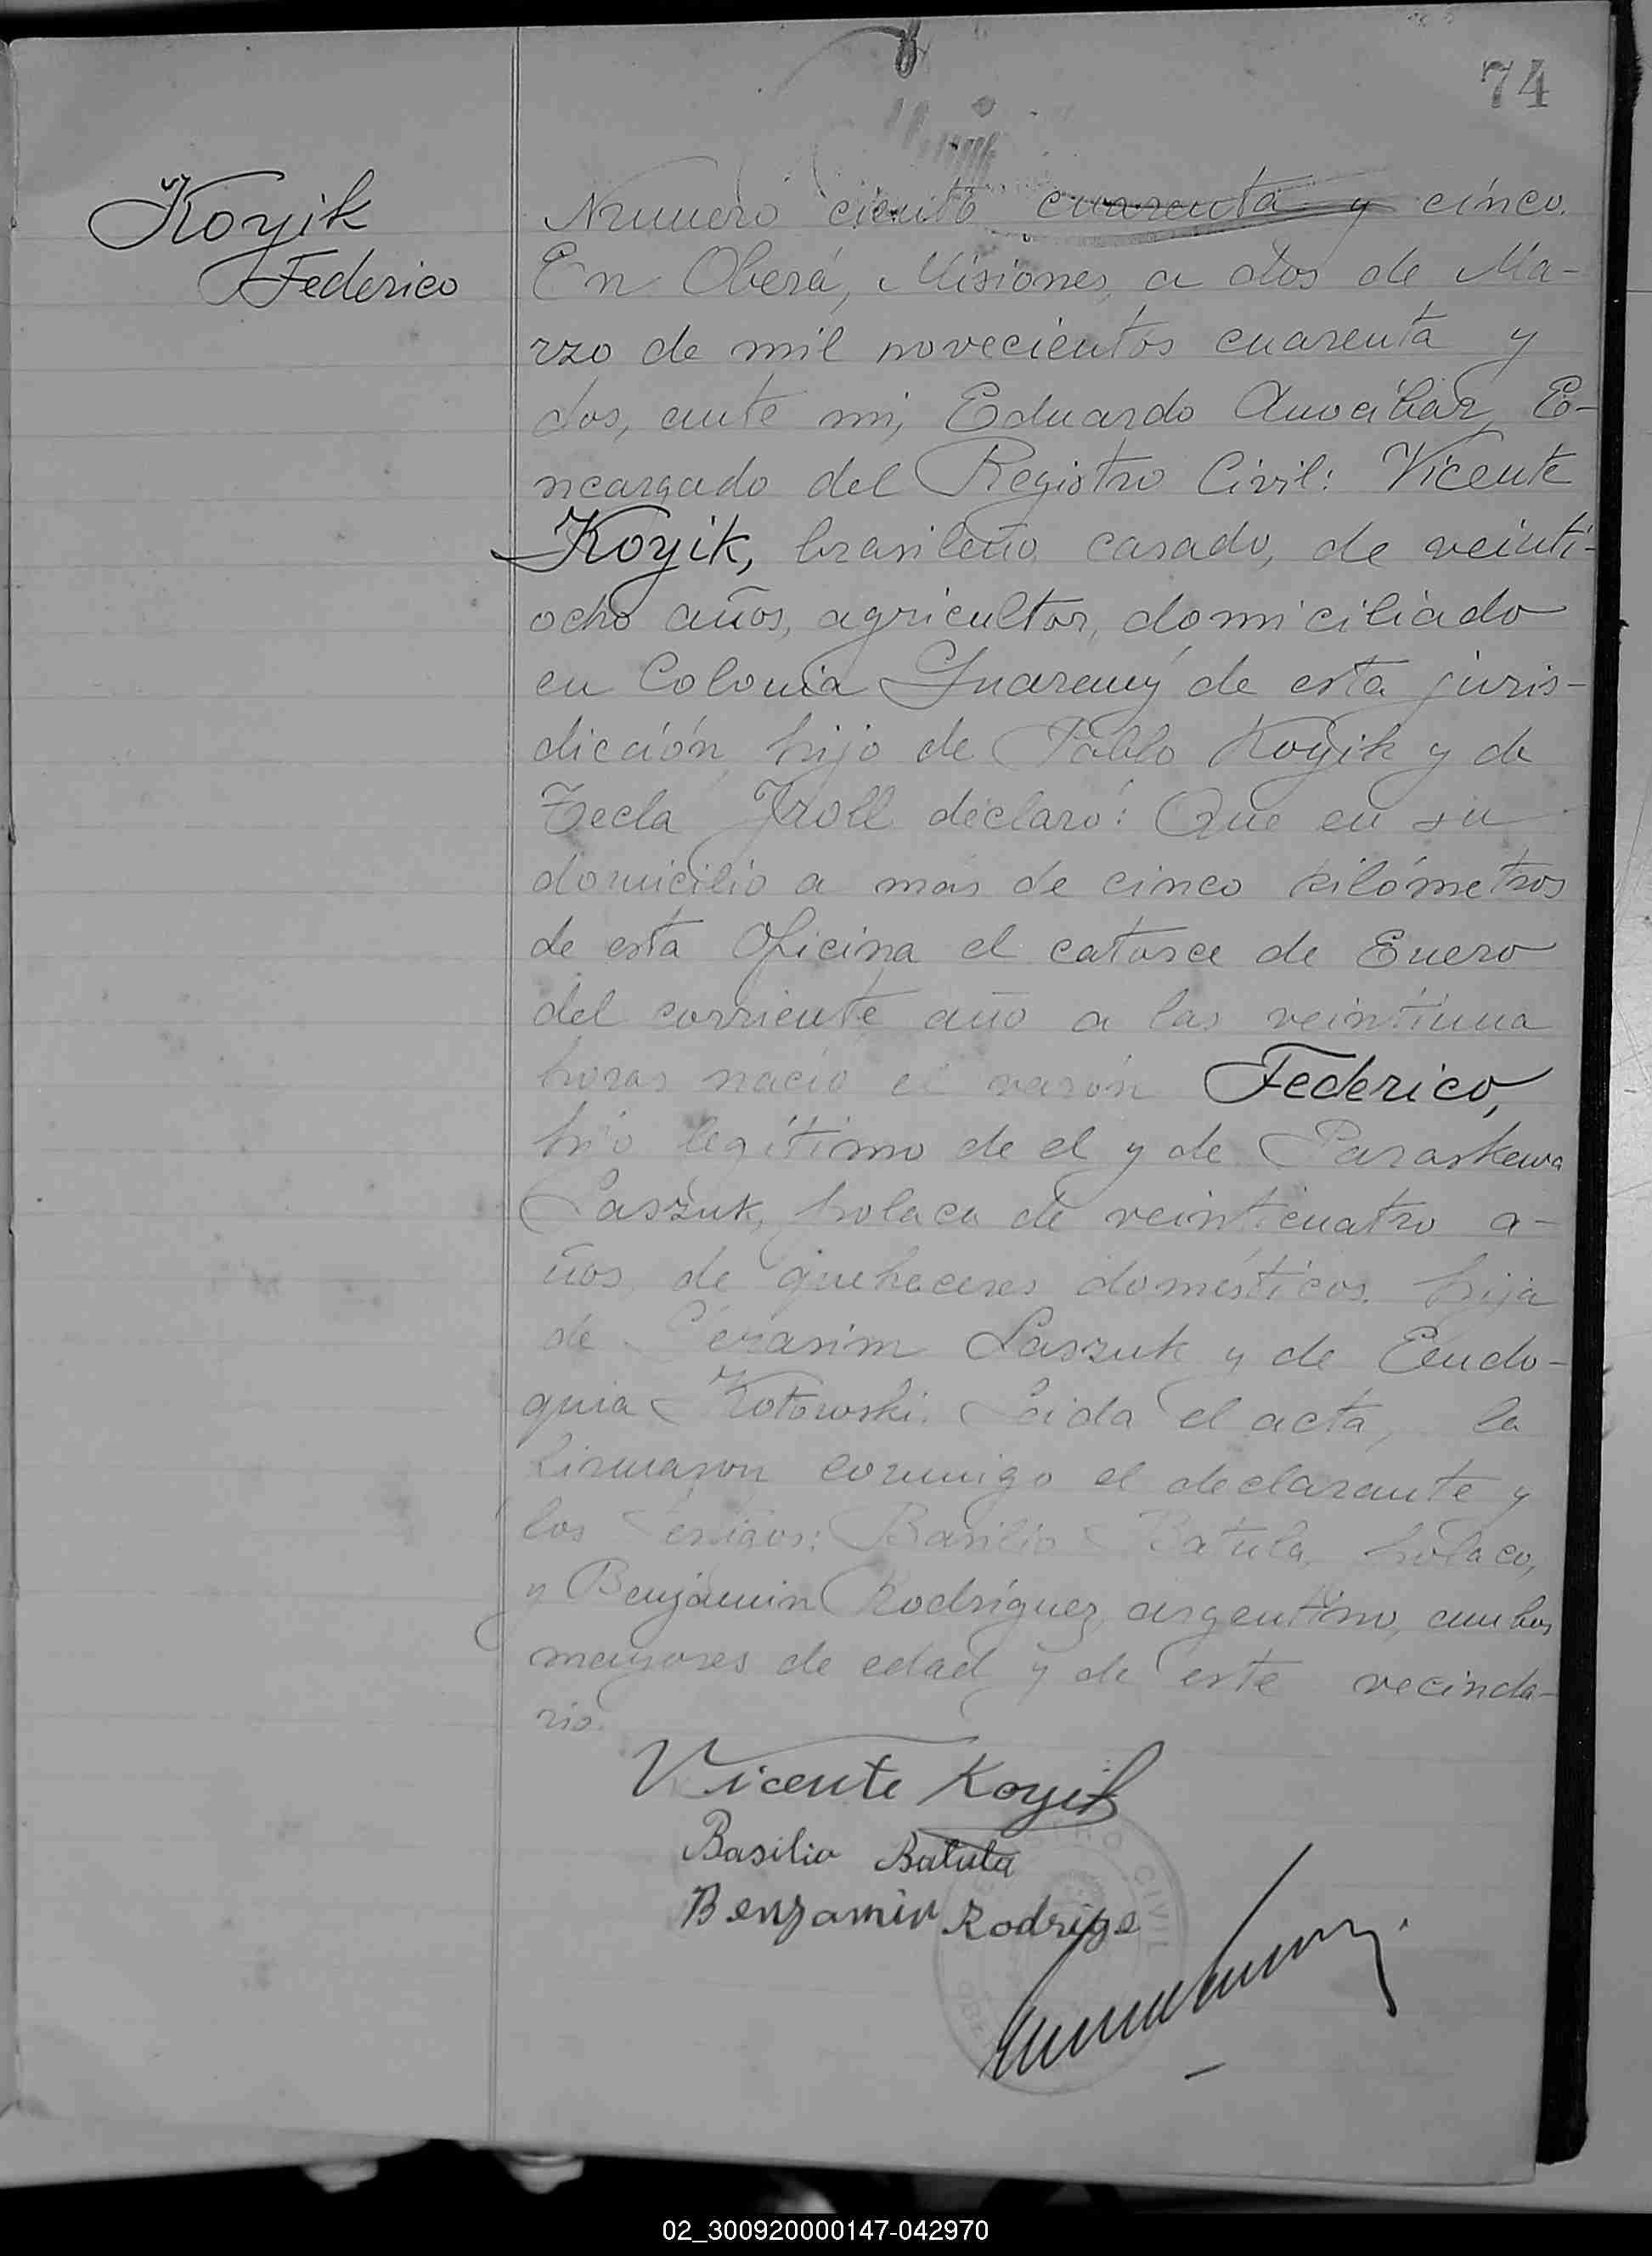 74
Koyik
Federico
Numero ciento cuarenta y cinco.
En Oberá, Misiones, a dos de Ma-
rzo de mil novecientos cuarenta y
dos, ante mi, Eduardo E-
ncargado del Registro Civil: Vicente
Koyik, brasileño, casado, de veinti-
ocho años, agricultor, domiciliado
en Colonia Guarany de esta juris-
dicción, hijo de Pablo Koyik y de
Tecla declaró: Que en su
domicilio a mas de cinco kilómetros
de esta Oficina el catorce de Enero
del corriente año a las veintiuna
horas nació el varón Federico,
hijo legítimo de el y de Paraskewa
Laszuk, polaca de veinticuatro a-
ños, de quehaceres domésticos, hija
de Gerasim Laszuk y de Eudo-
quia Kotowski. Leida el acta, la
firmaron conmigo el declarante y
los testigos: Basilio Batula, polaco,
y Benjamin Rodríguez, argentino, ambos
mayores de edad y de este vecinda-
rio.
Vicente Koyik
Basilio Batula
Benjamin Rodrige
CIVIL
02_300920000147-042970